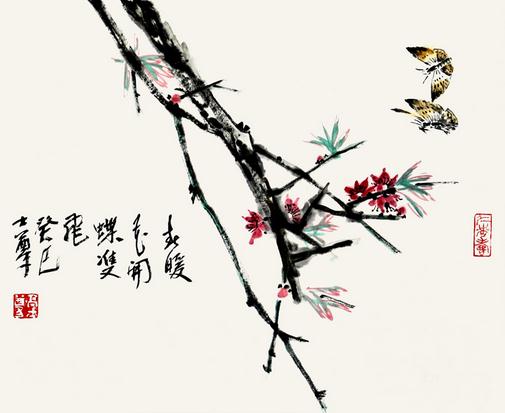 春暖
花開
蝶雙
飛
癸巳
士尊